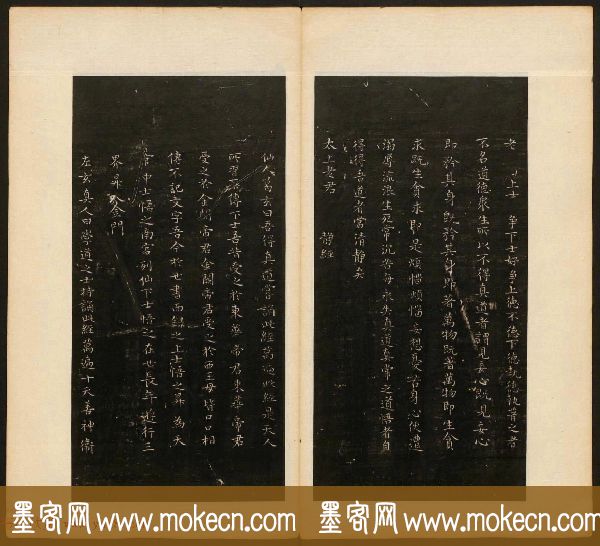 老 上士 爭下士好爭上德不德下德執德執著之者
不名道德衆生所以不得真道者謂見妄心既見妄心
即 其身既 其身即著萬物既著萬物即生貪
求既生貪求即是煩惱煩惱妄想憂苦身心便遭
濁辱流浪生死常沉苦海永失真道真常之道悟者自
得得吾道者當清靜矣
太上老君 靜經
仙人葛玄曰吾得真道當誦此經萬遍此經是天人
所習 傳下士吾昔受之於東華帝君東華帝君
受之於金闕帝君金闕帝君受之於西王母皆口口相
傳不記文字吾今於世書而錄之上士悟之昇為天
中士悟之南宮列仙下士悟之在世長年遊行三
界昇入金門
左玄真人曰學道之士持誦此經萬遍十天善神衛
墨客网 www.mokecn.com 墨客网 www.mokecn.com